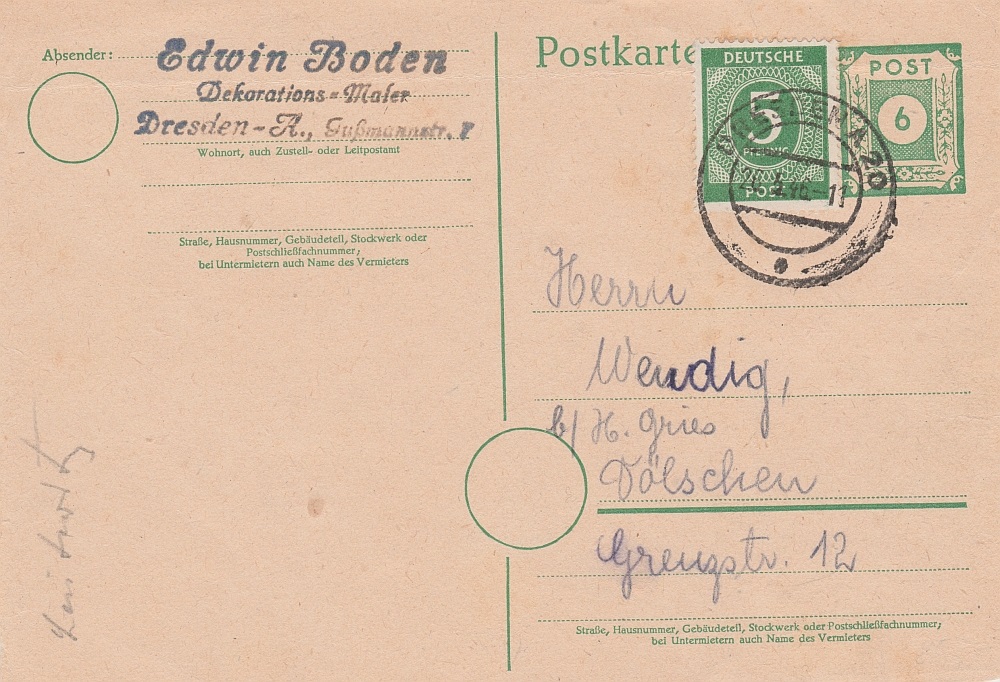 Absender:
Edwin Boden
Dekorations-Maler
Dresden-A., Gußmannstr.
Wohnort, auch Zustell- oder Leitpostamt
Straße, Hausnummer, Gebäudeteil, Stockwerk oder
Postschließfachnummer;
bei Untermietern auch Name des Vermieters
Postkarte
DEUTSCHE
5
PFENNIG
POST
POST
6
DRESDEN A 20
46.-11
Herrn
Wendig,
b/ H. Gries
Dölschen
Grenzstr. 12
Straße, Hausnummer, Gebäudeteil, Stockwerk oder Postschließfachnummer;
bei Untermietern auch Name des Vermieters